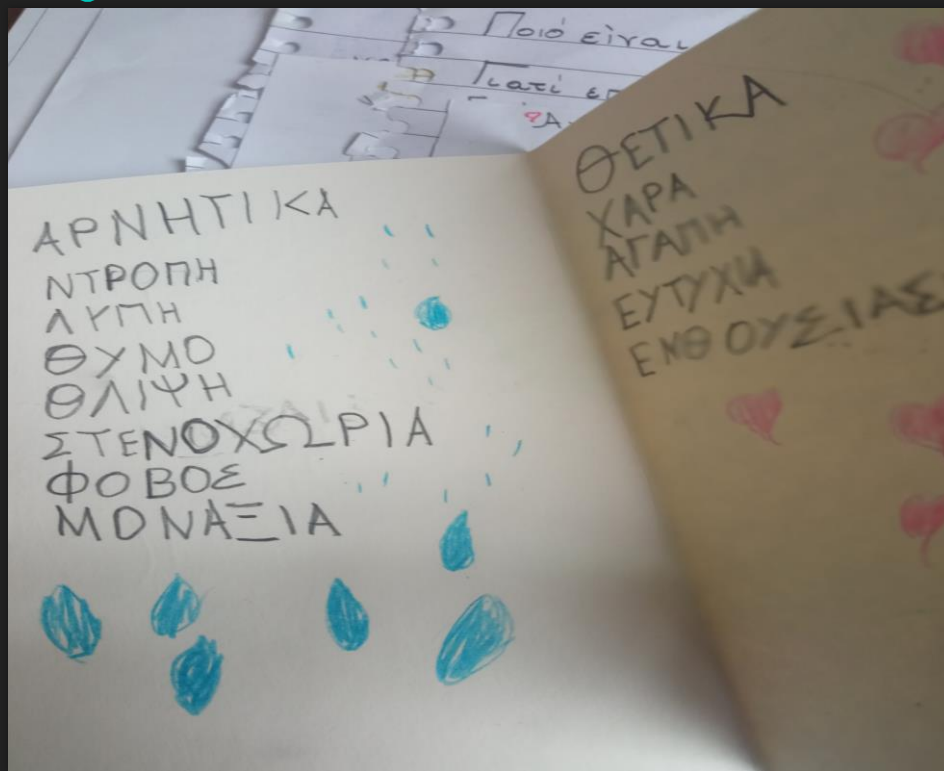 Ποιό είναι
Γιατί
ΑΡΝΗΤΙΚΑ
ΝΤΡΟΠΗ
ΛΥΠΗ
ΘΥΜΟ
ΘΛΙΨΗ
ΣΤΕΝΟΧΩΡΙΑ
ΦΟΒΟΣ
ΜΟΝΑΞΙΑ
ΘΕΤΙΚΑ
ΧΑΡΑ
ΑΓΑΠΗ
ΕΥΤΥΧΙΑ
ΕΝΘΟΥΣΙΑΣ